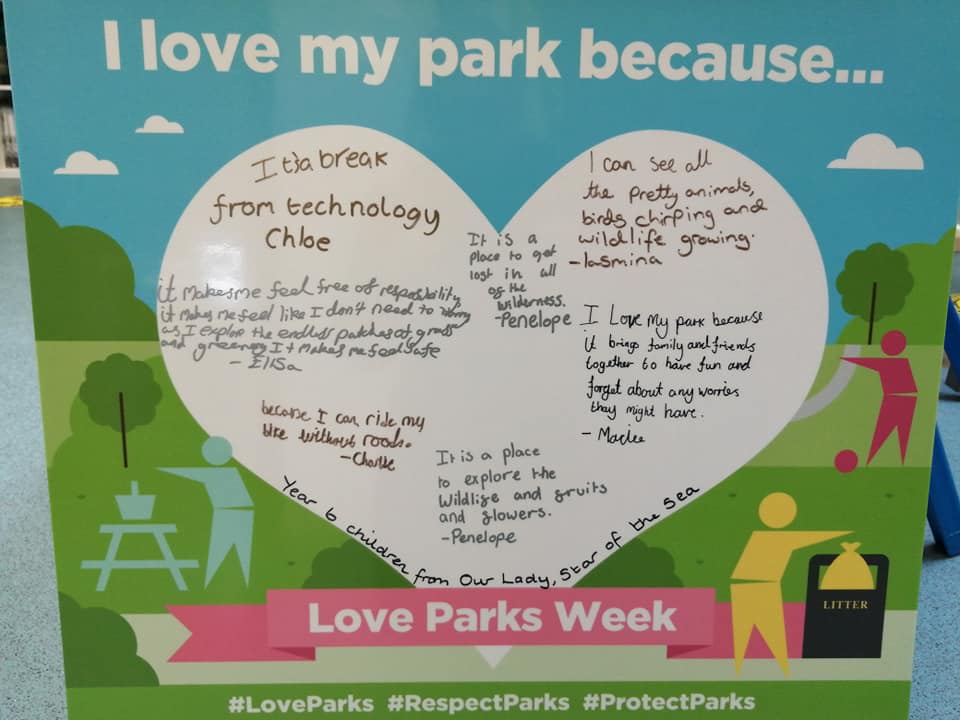 I love my park because...
It's a break
from technology
Chloe
I can see all
the pretty animals,
birds chirping and
wildlife growing.
- Iasmina
It is a
place to get
lost in all
of the
wilderness.
-Penelope
it makes me feel free of responsibility
it makes me feel like I don't need to worry
as I explore the endless patches of grass
and greenery It makes me feel safe
- Elisa
I Love My park because
it brings family and friends
together to have fun and
forget about any worries
they might have.
-
because I can ride my
bike without roads.
-Charlie
It is a place
to explore the
wildlife and fruits
and flowers.
-Penelope
Year 6 children from Our Lady, Star of the Sea
LITTER
Love Parks Week
#LoveParks #RespectParks #ProtectParks